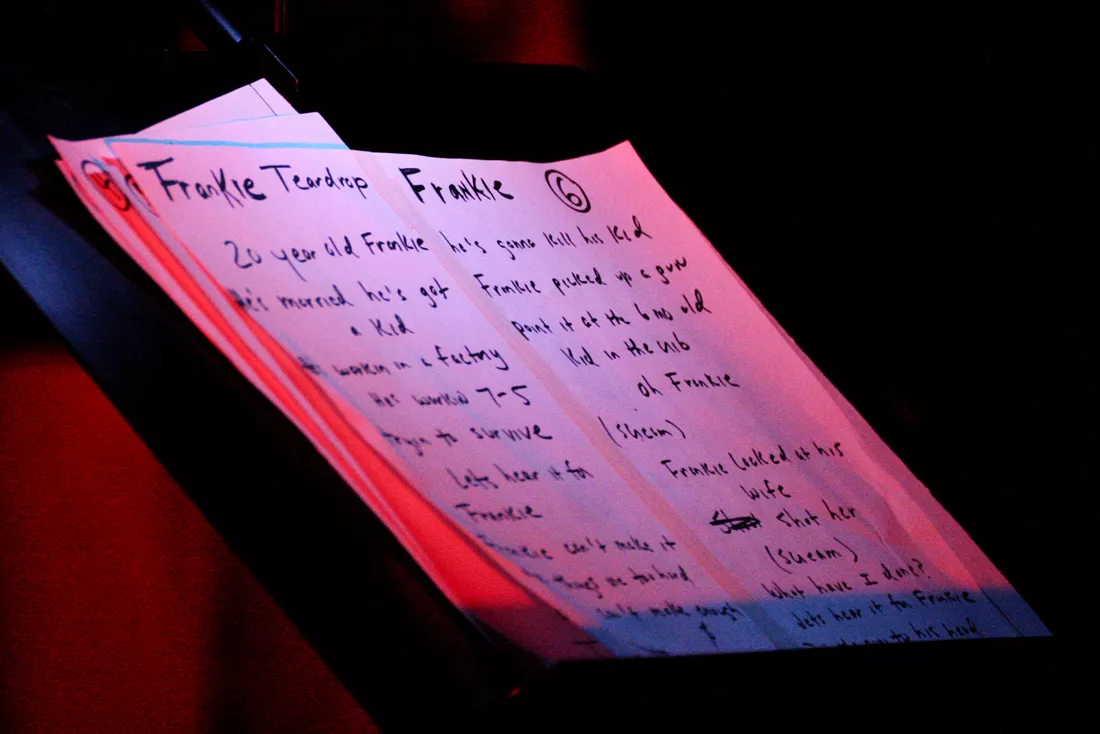 Frankie Teardrop
20 year old Frankie
He's married he's got
a Kid
workin in a factory
He's workin 7-5
tryin to survive
Lets hear it for
Frankie
Frankie can't make it
things are too hard
can't make enough
Frankie
6
he's gonna kill his Kid
Frankie picked up a gun
point it at the 6 mo old
Kid in the crib
oh Frankie
(scream)
Frankie looked at his
wife
shot her
(scream)
What have I done?
Lets hear it for Frankie
to his head